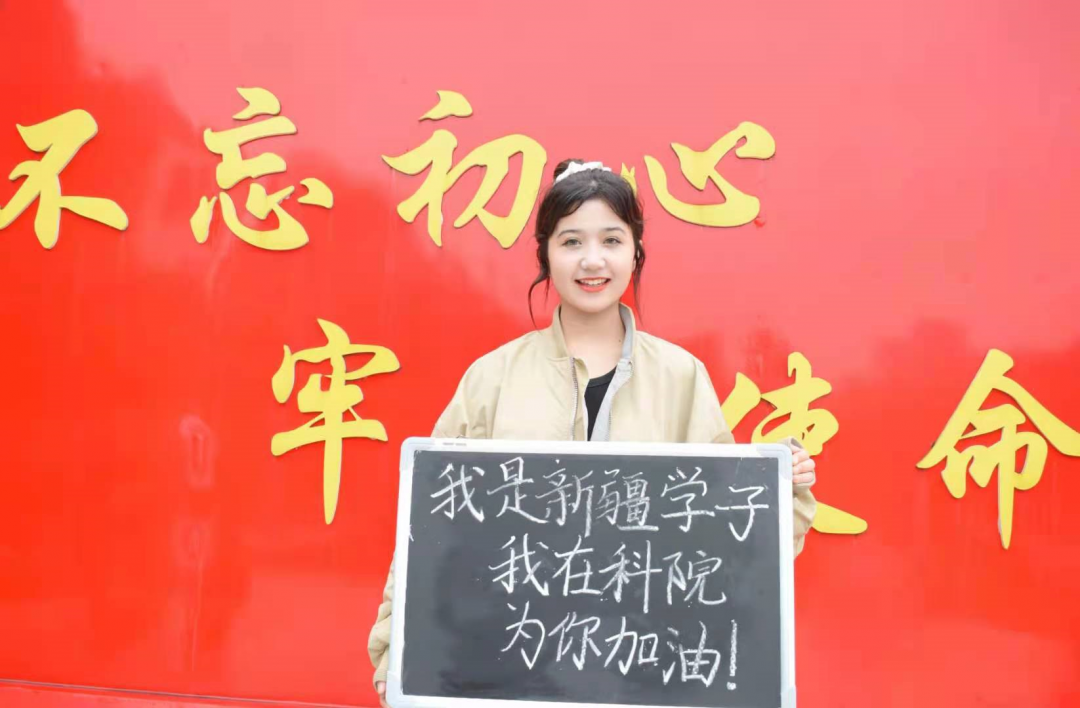 不忘初心
牢 使命
我是新疆学子
我在科院
为你加油!